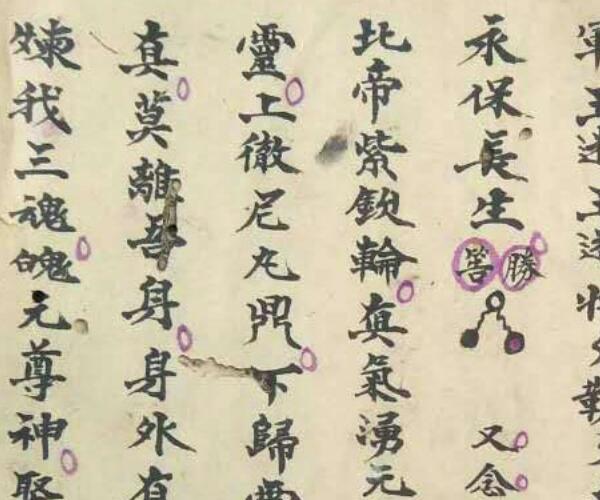 軍王
永保長生 勝 又念
北帝紫欽輪真氣湧元
靈上徹尼丸鼎下歸
真莫離吾身身外有
煉我三魂魄元尊神聚